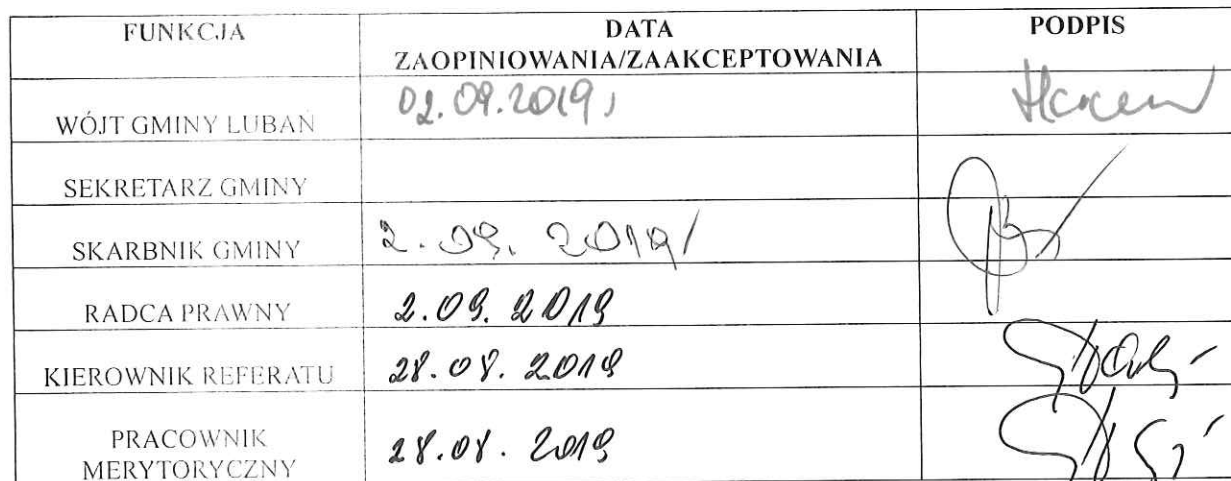 FUNKCJA DATA PODPIS
ZAOPINIOWANIA/ZAAKCEPTOWANIA
WÓJT GMINY LUBAŃ 02.09.2019
SEKRETARZ GMINY
SKARBNIK GMINY 2.09.2019
RADCA PRAWNY 2.09.2019
KIEROWNIK REFERATU 28.08.2019
PRACOWNIK
MERYTORYCZNY 28.08.2019